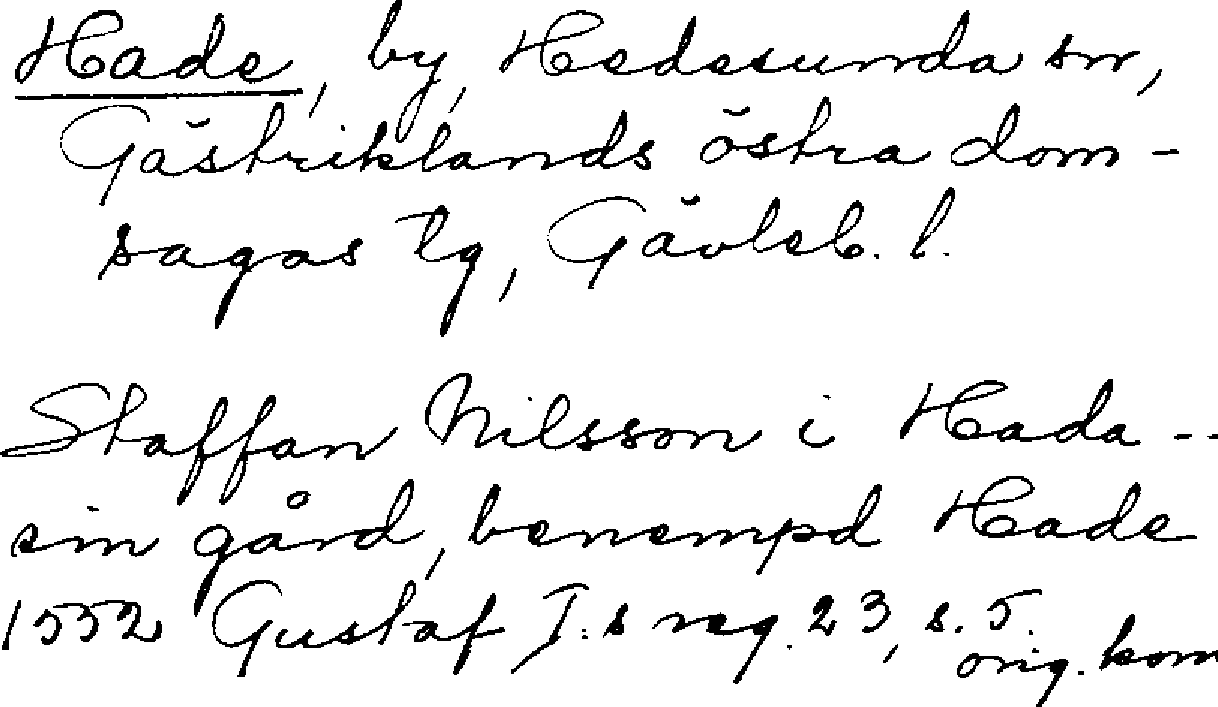 Hade, by, Hedesunda sn,
Gästriklands östra dom-
sagas tg, Gävleb. l.
Staffan Nilsson i Hada --
sin gård, benempd Hade
1552 Gustaf I:s reg. 23, s. 5.
orig. kom